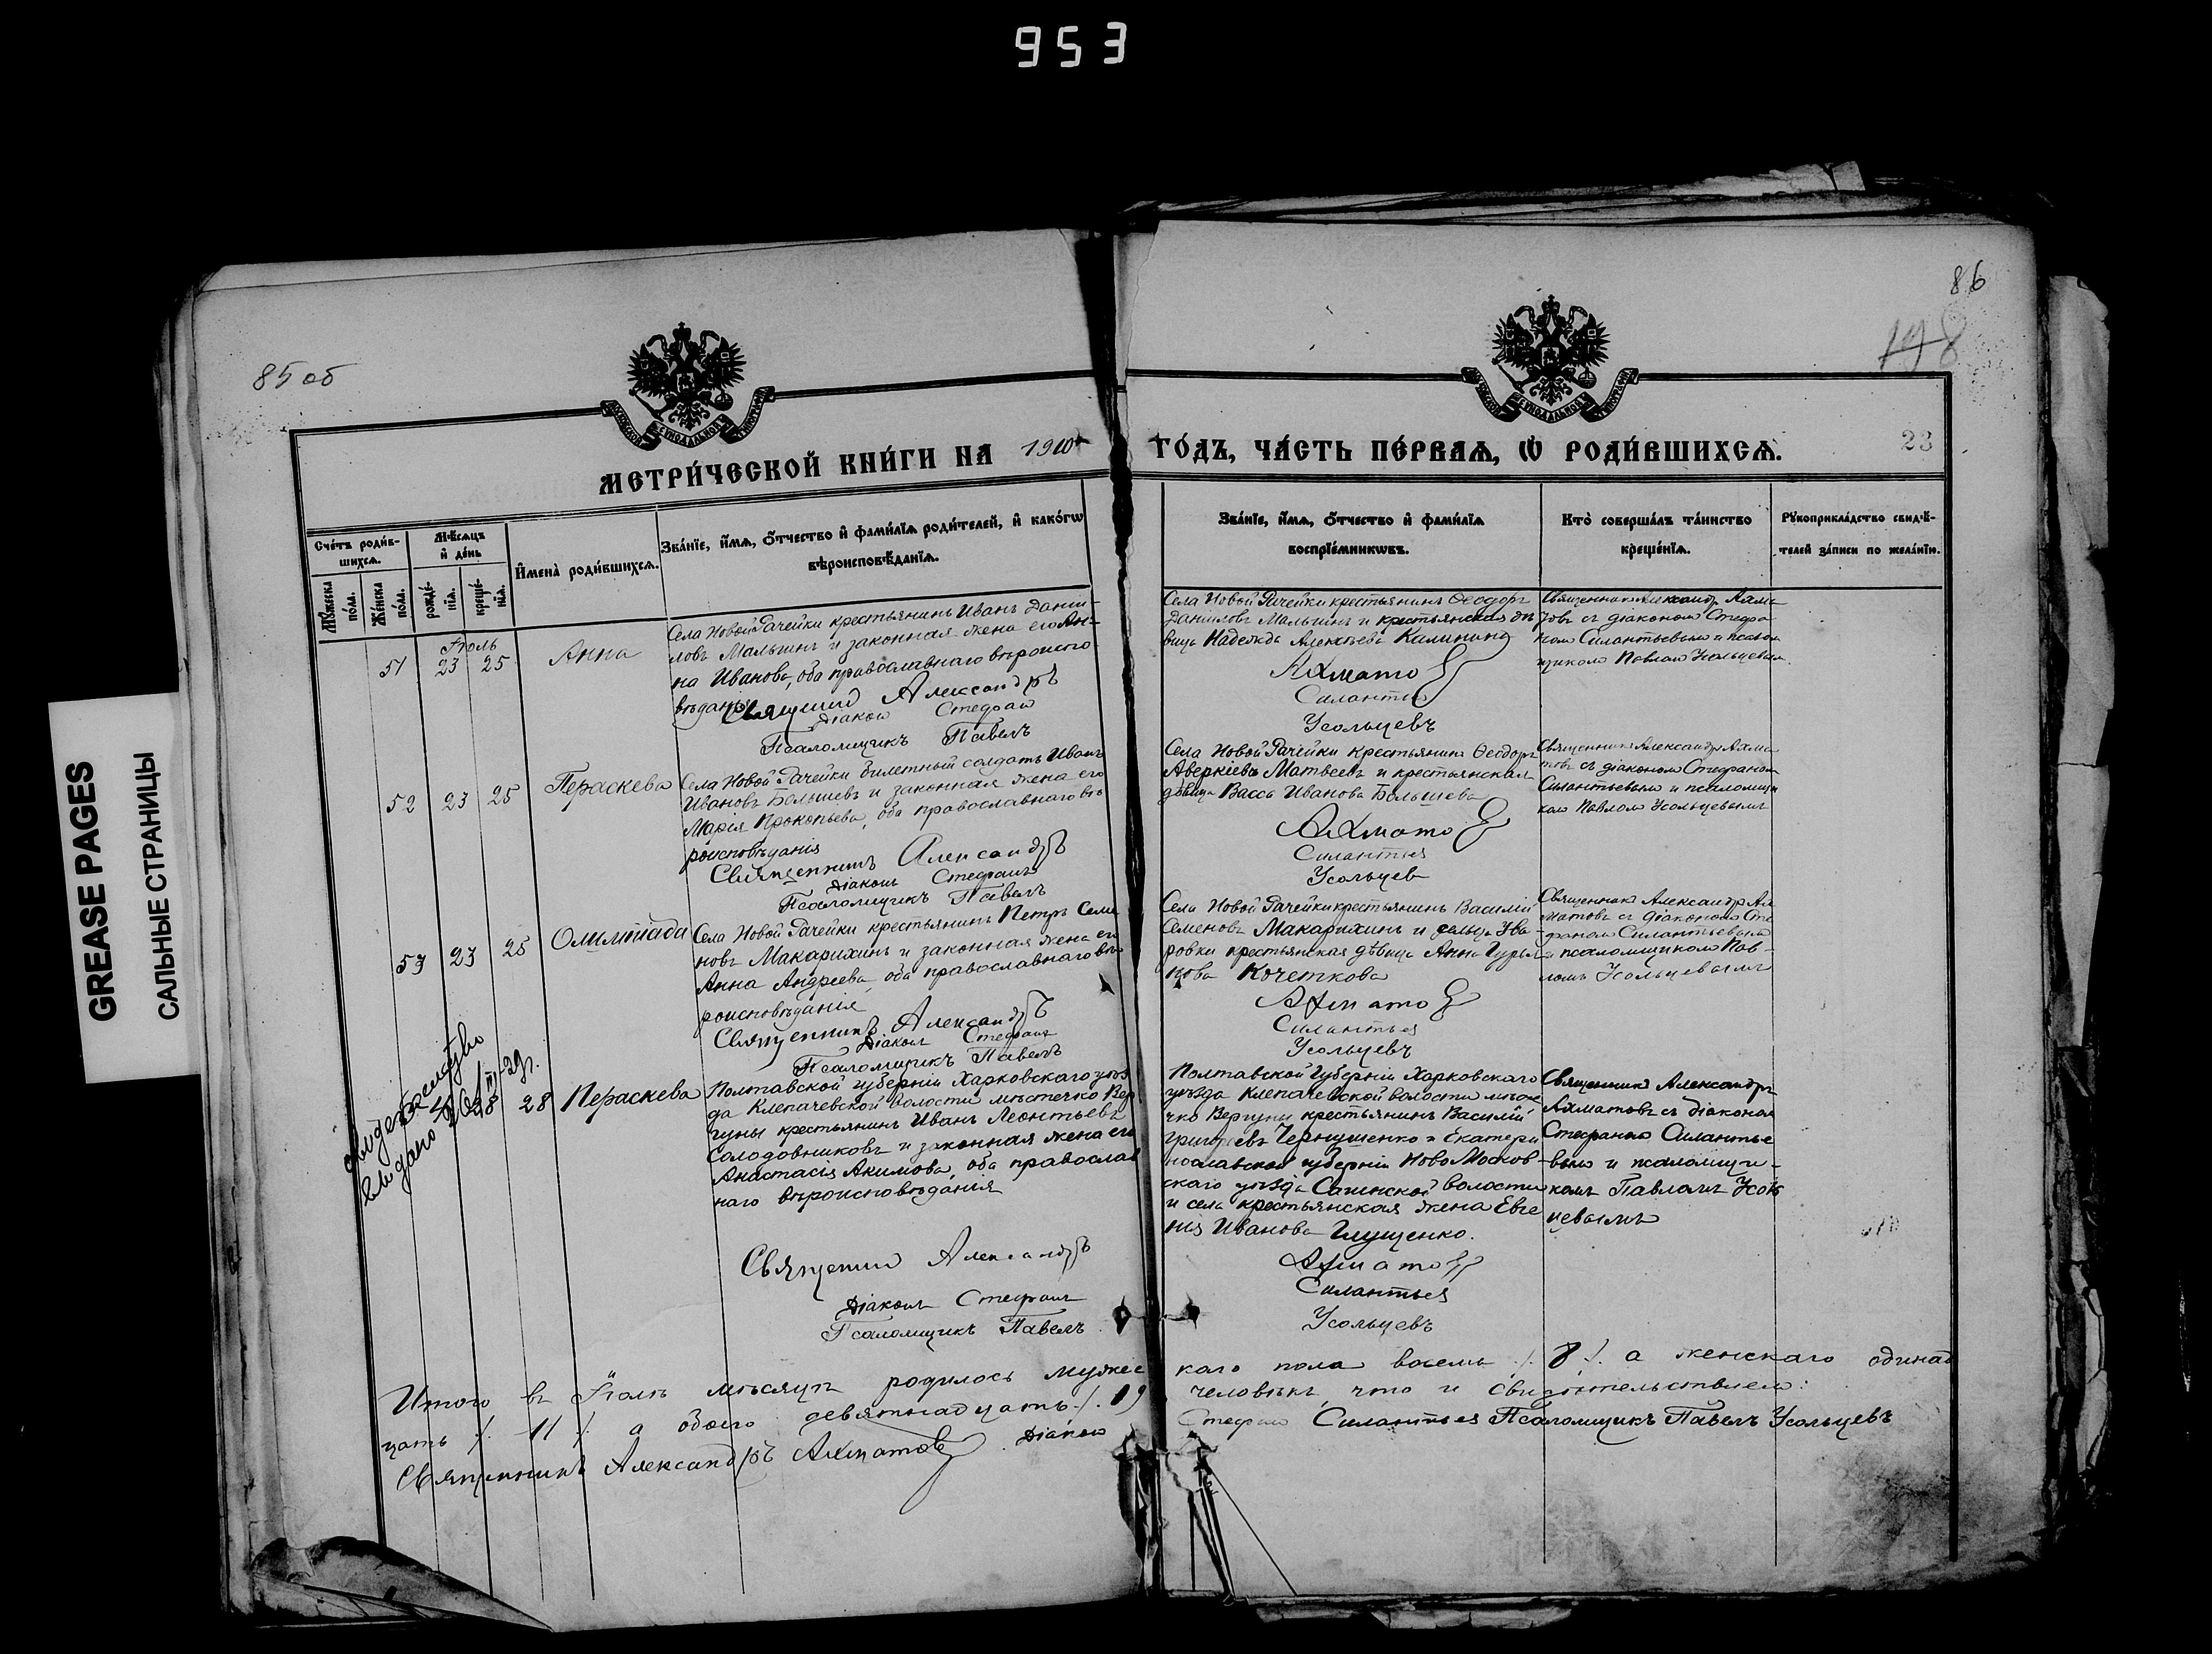 953
85 об
86
198
23
GREASE PAGES
САЛЬНЫЕ СТРАНИЦЫ
МЕТРИ́ЧЕСКОЙ КНИ́ГИ НА 1910 ГО́ДЪ, ЧА́СТЬ ПЕ́РВАѦ, Ѡ҆ РОДИ́ВШИХСѦ.
Сче́тъ роди́в-
шихсѧ.
Мꙋ́жеска
по́ла.
Же́нска
по́ла.
Мѣ́сѧцъ
и҆ де́нь
рожде́-
нїѧ.
креще́-
нїѧ.
И҆мена̀ роди́вшихсѧ.
Зва́нїе, и҆́мѧ, ѻ҆́тчество и҆ фами́лїѧ роди́телей, и҆ како́гѡ
вѣроисповѣ́данїѧ.
Зва́нїе, и҆́мѧ, ѻ҆́тчество и҆ фами́лїѧ
воспрїе́мникѡвъ.
Кто̀ соверша́лъ та́инство
креще́нїѧ.
Рꙋкоприкла́дство свидѣ́-
телей за́писи по жела́нїю.
Іюль
51 23 25 Анна
Села Новой Рачейки крестьянинъ Иванъ Дани-
ловъ Малышинъ и законная жена его Ан-
на Иванова, оба православнаго вѣроиспо-
вѣданія
Священник Александръ
Діакон Стефан
Псаломщикъ Павелъ
Села Новой Рачейки крестьянинъ Ѳеодоръ
Даниловъ Малышинъ и крестьянская дѣ
вица Надежда Алексѣева Калинина
Ахматов
Силантьев
Усольцевъ
Священникъ Александръ Ахма
товъ съ діакономъ Стефа
номъ Силантьевымъ и псалом
щикомъ Павломъ Усольцевым.
52 23 25 Параскева
Села Новой Рачейки билетный солдатъ Иванъ
Ивановъ Большевъ и законная жена его
Марія Прокопьева, оба православнаго вѣ
роисповѣданія
Священникъ Александръ
Діаконъ Стефанъ
Псаломщикъ Павелъ
Села Новой Рачейки крестьянинъ Ѳеодоръ
Аверкіевъ Матвеевъ и крестьянская
дѣвица Васса Иванова Большева
Ахматов
Силантьев
Усольцев
Священникъ Александръ Ахма
товъ съ діакономъ Стефаном
Силантьевымъ и псаломщи
комъ Павломъ Усольцевымъ
53 23 25 Олимпіада
Села Новой Рачейки крестьянинъ Петръ Семе
новъ Макарихинъ и законная жена его
Анна Андреева, оба православнаго вѣ
роисповѣданія
Священникъ Александръ
Діаконъ Стефанъ
Псаломщикъ Павелъ
Села Новой Рачейки крестьянинъ Василій
Семеновъ Макарихинъ и сельца Ува-
ровки крестьянская дѣвица Анна Гурья
нова Кочеткова
Ахматов
Силантьев
Усольцевъ
Священникъ Александръ Ах
матовъ съ діакономъ Сте
фаномъ Силантьевымъ
и псаломщикомъ Пав-
ломъ Усольцевымъ
свидетельство
выдано
28 28 Параскева
Полтавской губерніи Харковскаго уѣз
да Клепачевской волости мѣстечко Вер
гуны крестьянинъ Иванъ Леонтьевъ
Солодовниковъ и законная жена его
Анастасія Акимова, оба православ
наго вѣроисповѣданія
Священник Александръ
Діаконъ Стефанъ
Псаломщикъ Павелъ
Полтавской губерніи Харковскаго
уѣзда Клепачевской волости мѣсте
чко Вергуны крестьянинъ Василій
Григорьевъ Чернушенко и Екатери
нославской губерніи НовоМосков-
скаго уѣзда волости
и села крестьянская жена Евге
нія Иванова Глущенко.
Ахматов
Силантьев
Усольцевъ
Священникъ Александръ
Ахматовъ съ діакономъ
Стефаномъ Силантье
вымъ и псаломщи-
комъ Павломъ Усоль
цевымъ
Итого въ Іюлѣ мѣсяцѣ родилось мужес каго пола восемь /. 8 /. а женскаго одинад
цать /. 11 /. а обоего девятнадцать /. 19 человѣкъ, что и свидѣтельствуемъ:
Священникъ Александръ Ахматовъ Діакон Стефан Силантьев Псаломщикъ Павелъ Усольцевъ